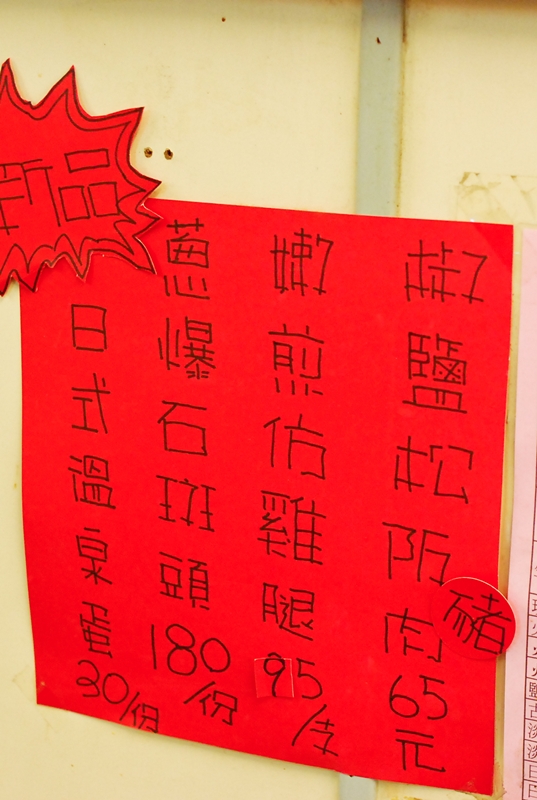 新品
椒鹽松阪肉65元
豬
嫩煎仿雞腿95/支
蔥爆石斑頭180/份
日式溫泉蛋30/份